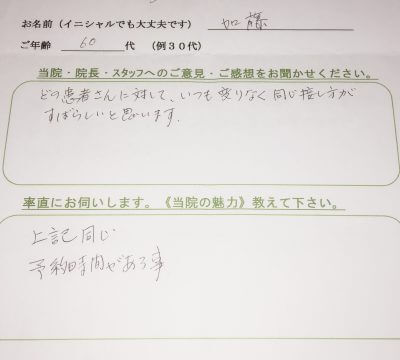 お名前(イニシャルでも大丈夫です) 加藤
ご年齢 60 代 (例30代)
当院・院長・スタッフへのご意見・ご感想をお聞かせください。
どの患者さんに対して、いつも変りなく同じ接し方が
すばらしいと思います。
率直にお伺いします。《当院の魅力》教えて下さい。
上記同じ
予約時間がある事